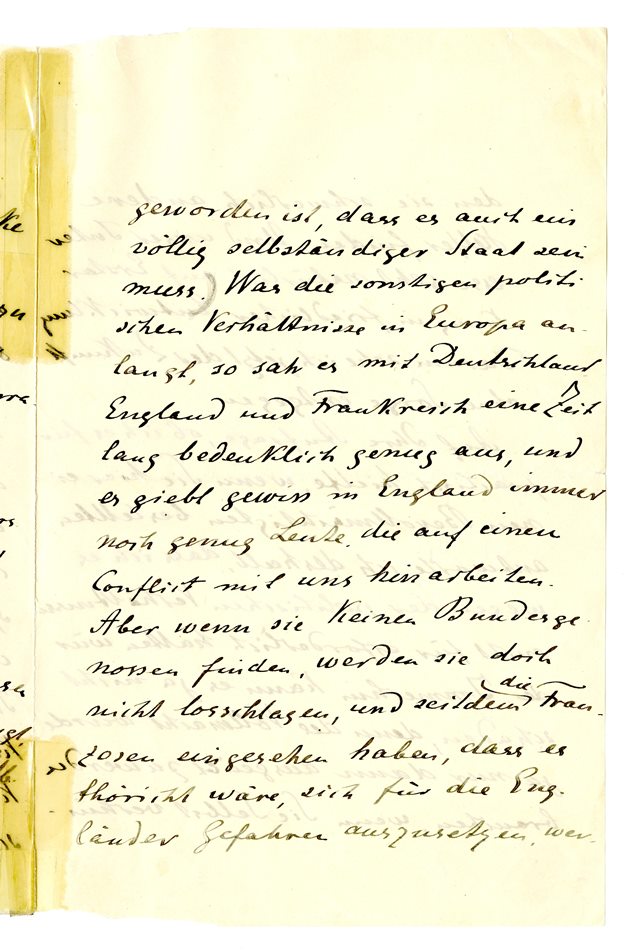 geworden ist, dass es auch ein
völlig selbständiger Staat sein
muss. Was die sonstigen politi
schen Verhältnisse in Europa an-
langt, so sah es mit Deutschland
England und Frankreich eine Zeit
lang bedenklich genug aus, und
es giebt gewiss in England immer
noch genug Leute, die auf einen
Conflict mit uns hinarbeiten.
Aber wenn sie keinen Bundesge
nossen finden, werden sie doch
nicht losschlagen, und seitdem die Fran-
zosen eingesehen haben, dass es
thöricht wäre, sich für die Eng-
länder Gefahren auszusetzen, wer-